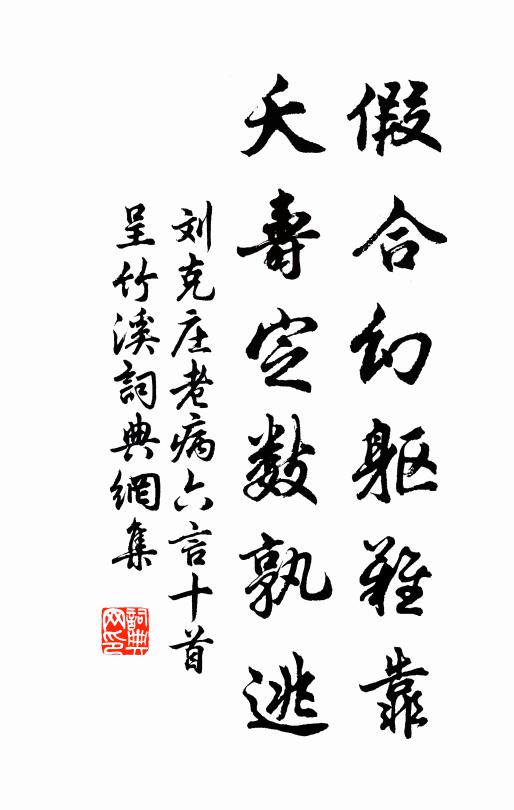 假合幻躯难靠
夭寿定数孰逃
刘克庄老病六言十首
呈竹溪詞典網集
詞典
网印